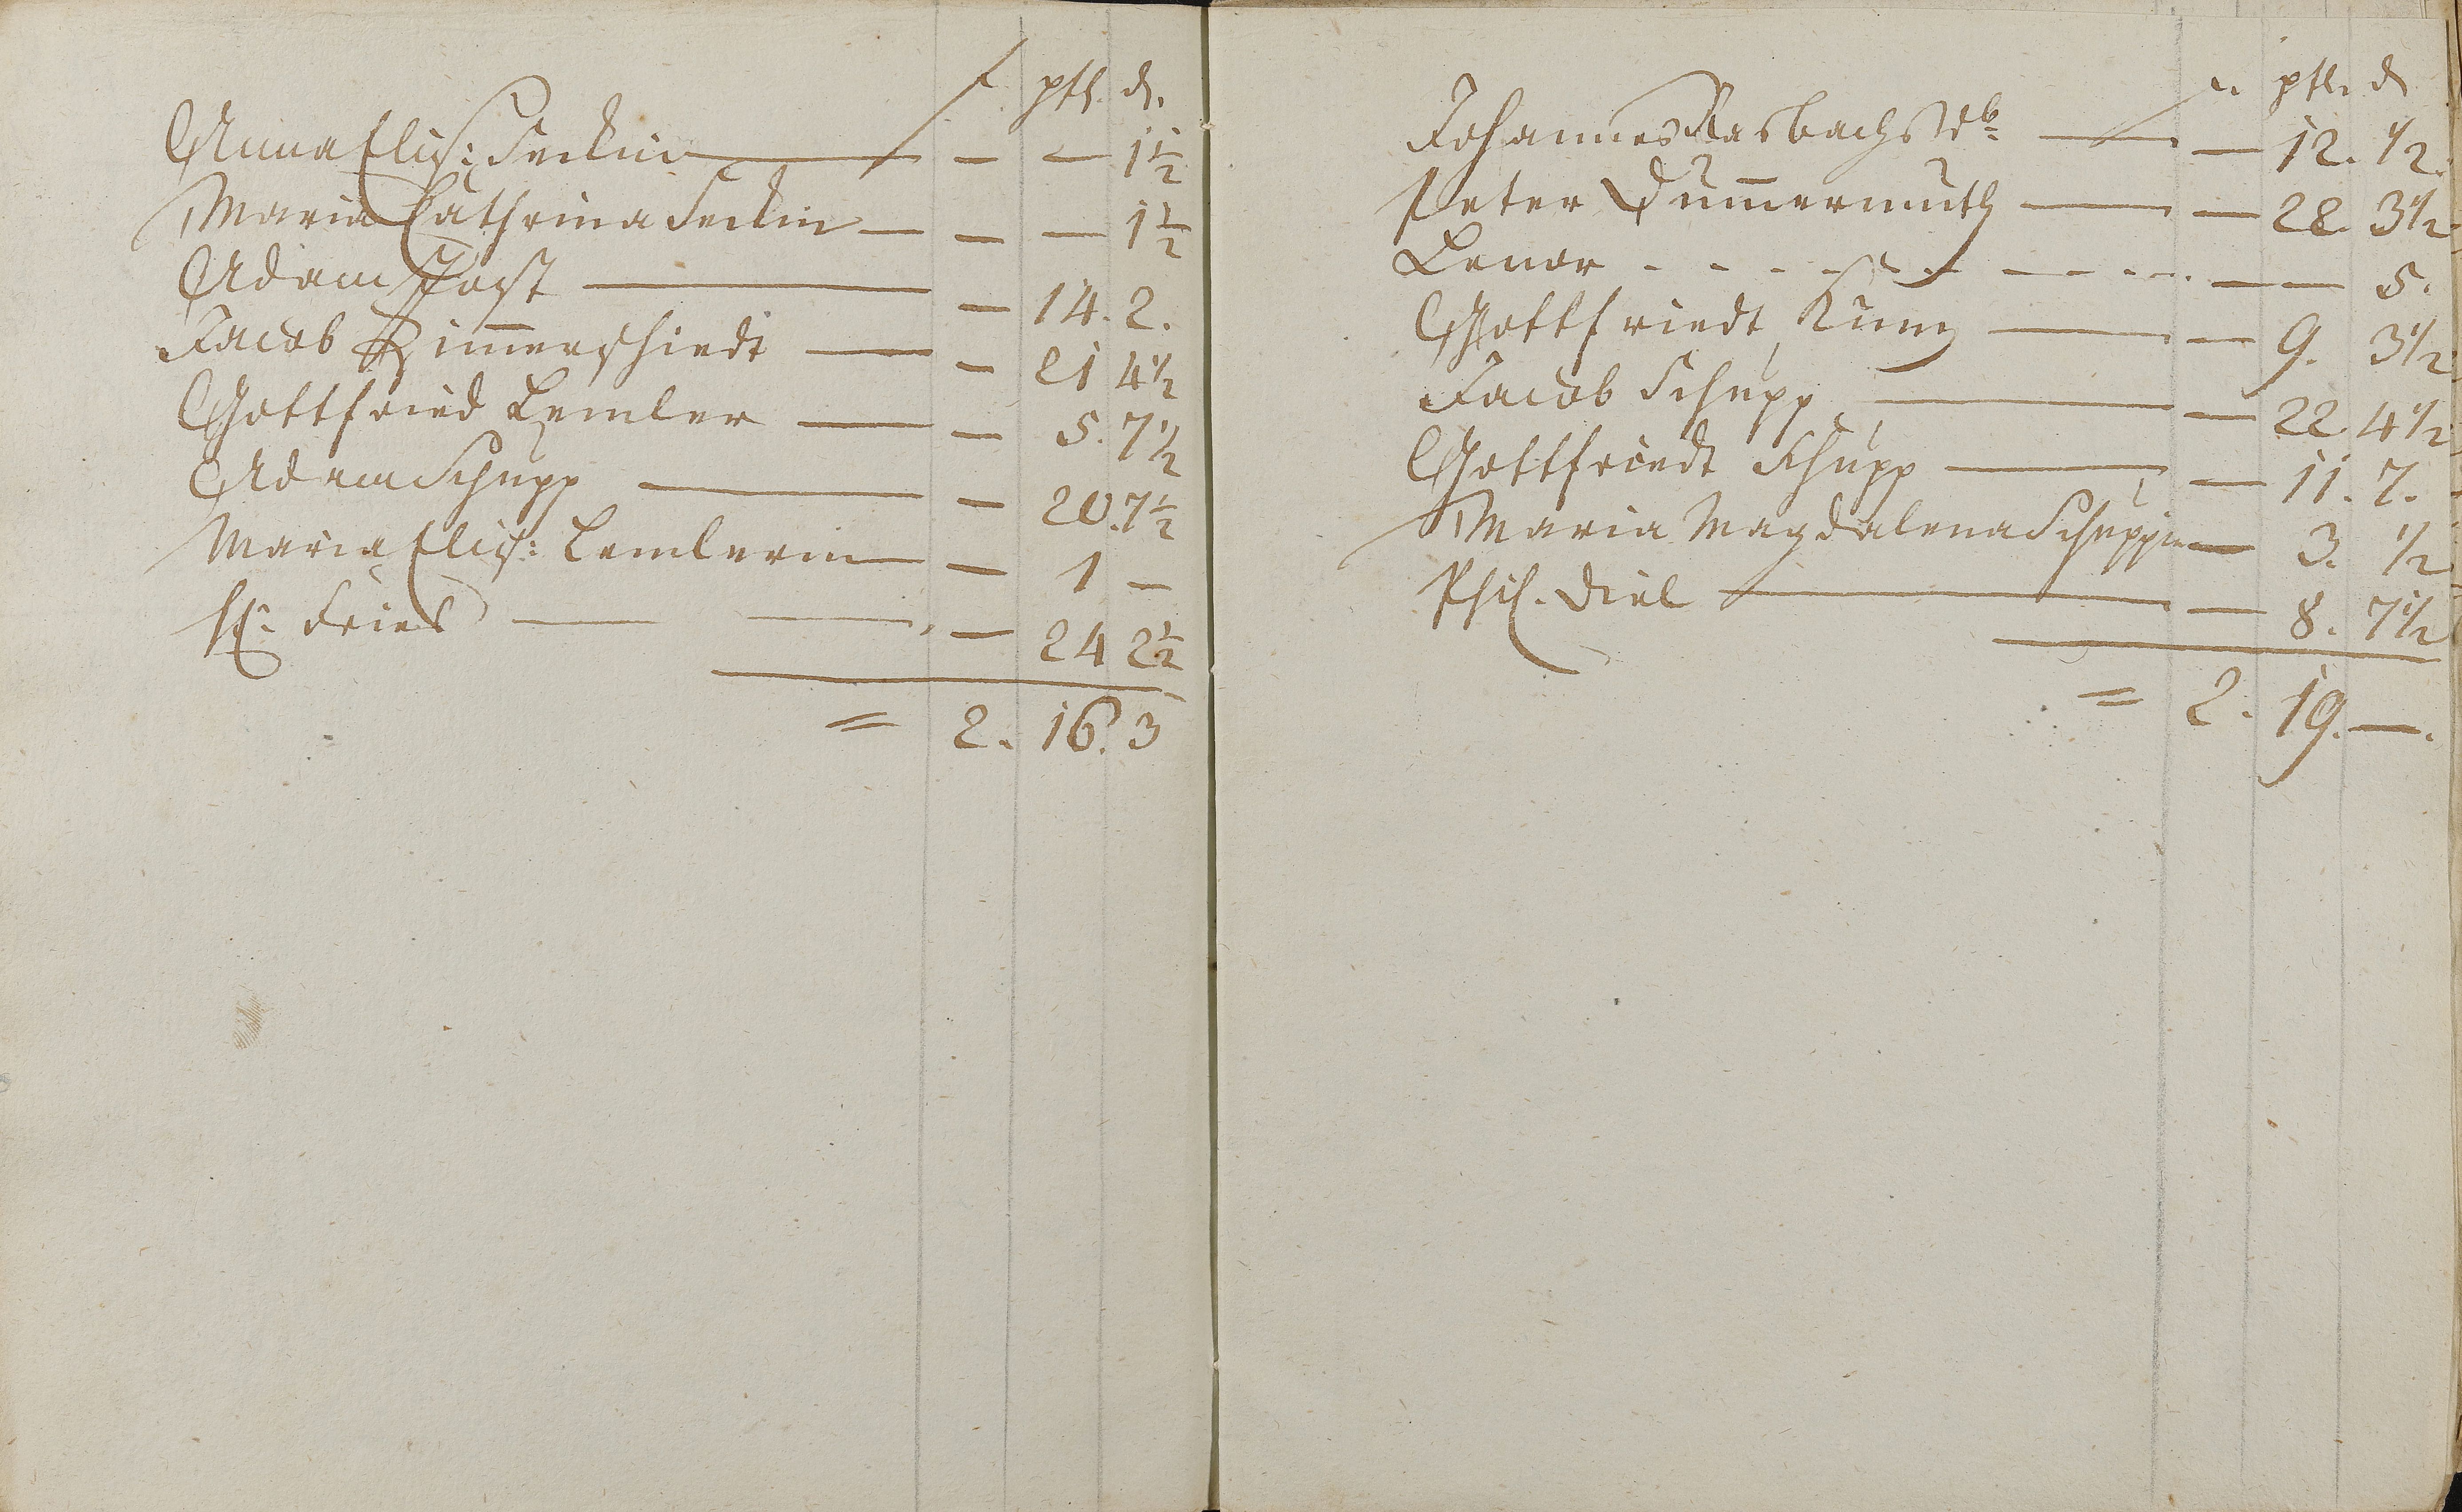 f. ptl. d.
Anna Elis: Feckin — — — 1 1/2
Maria Cathrina Feckin — — — 1 1/2
Adam Post — — 14. 2.
Jacob Zim̄erschiedt — — 21 4 1/2
Gottfried Lemler — — 5. 7 1/2
Adam Schupp — — 20. 7 1/2
Maria Elis: Lemlerin — — 1 —
H: Fries — — — 24 2 1/2
= 2. 16. 3
ptl. d
Johannes Wb — — 12. 1/2
Peter Dum̄ermuth — — 22. 3 1/2
Lenor - - - — — 5.
Gottfriedt Kunz — — 9. 3 1/2
Jacob Schupp — — 22 4 1/2
Gottfriedt Schupp — — 11. 7.
Maria Magdalena Schuppin — 3. 1/2
Phil. Diel — — 8. 7 1/2
= 2. 19. —.